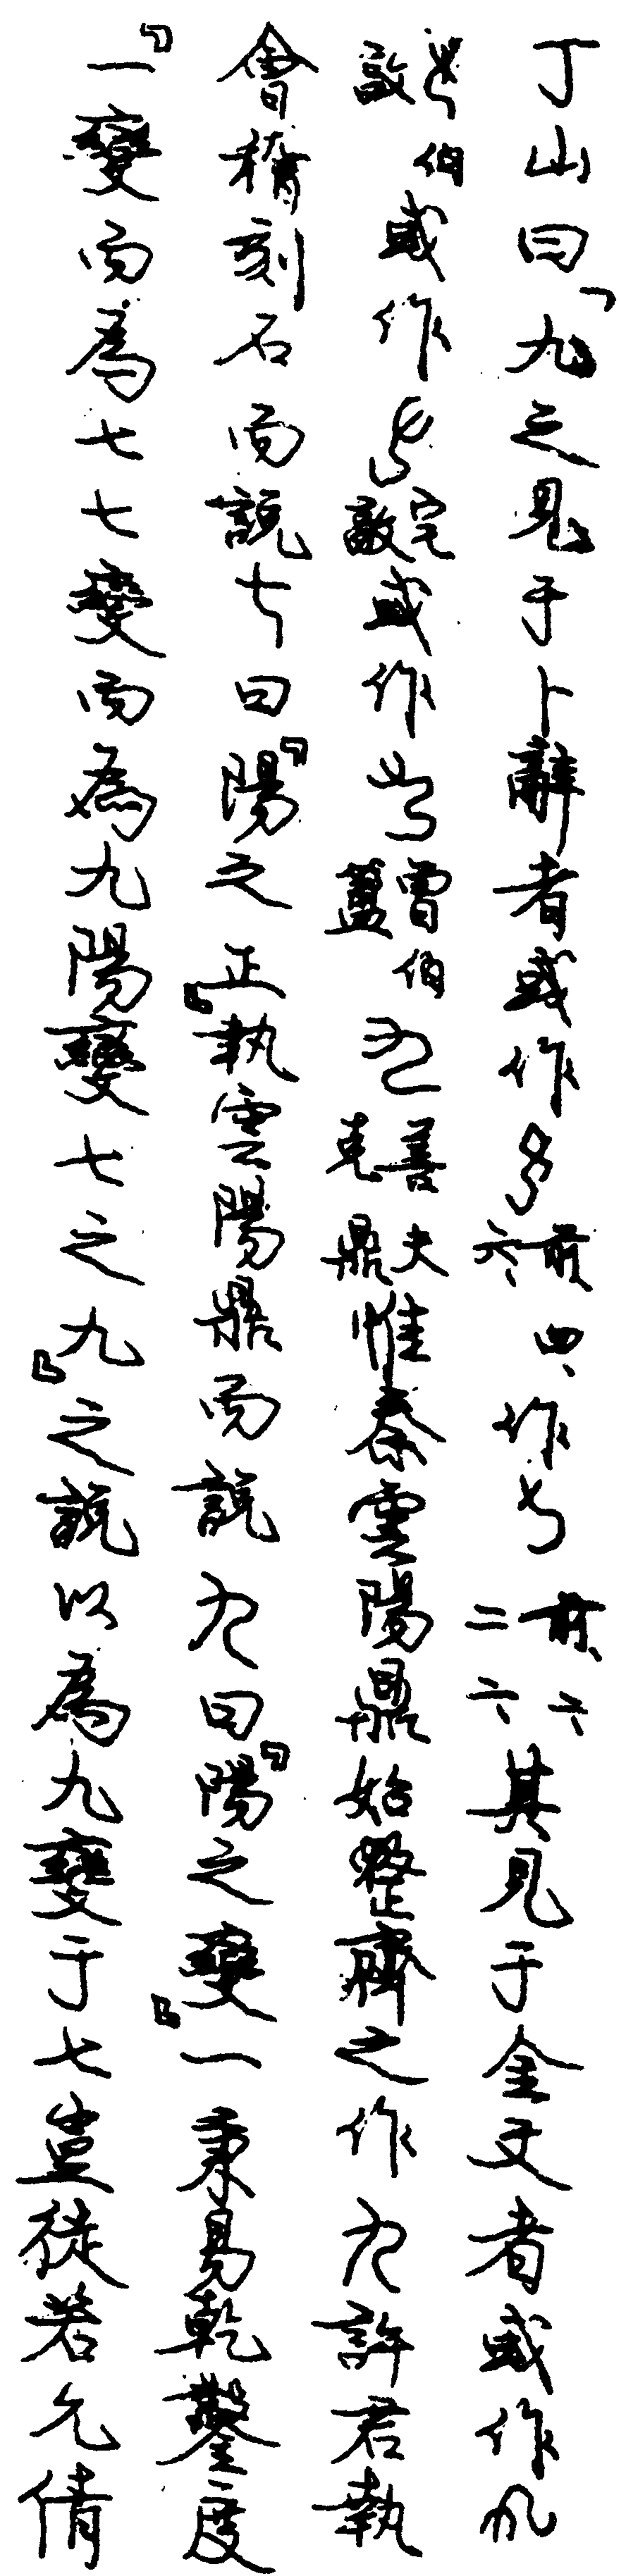 丁山曰「九之見于卜辭者或作前四、六、作前、六二六、其見于金文者或作
伯㪤或作宅㪤或作曾伯簠善夫克鼎惟秦雲陽鼎始整齊之作九許君執
會稽刻石而說七曰『陽之正』執雲陽鼎而說九曰『陽之變』一秉易乾鑿度
『一變而為七七變而為九陽變七之九』之說以為九變于七豈徒若允倩